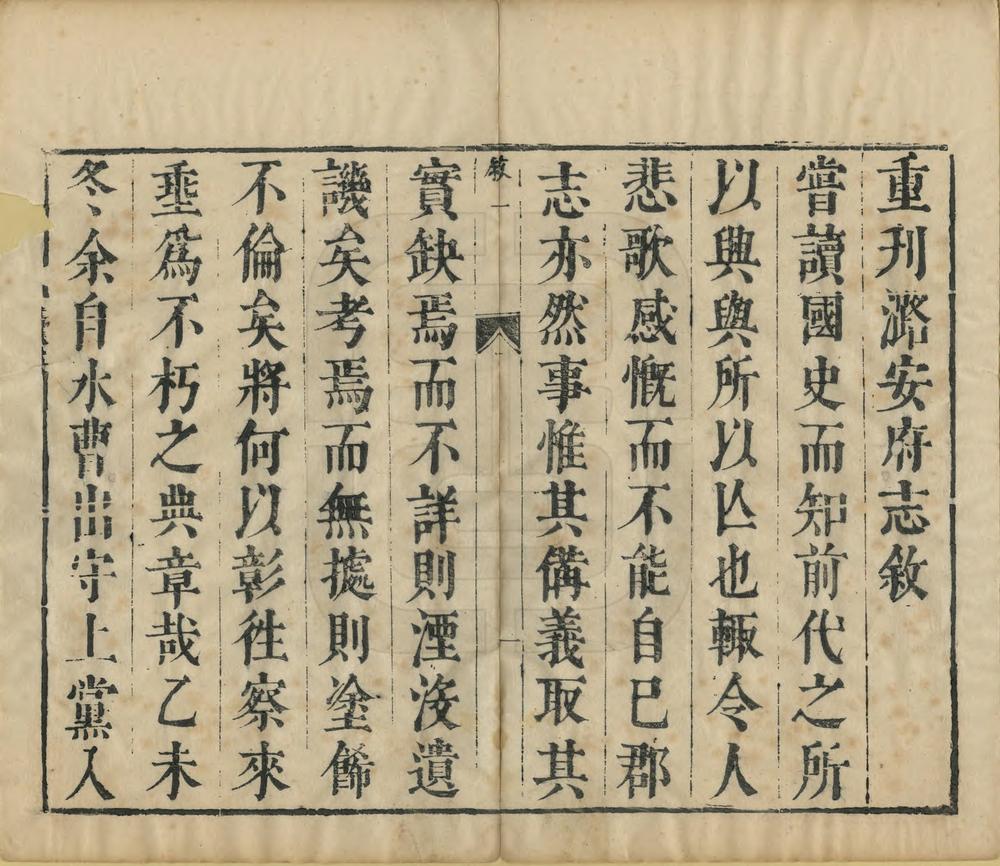 重刊潞安府志敘
嘗讀國史而知前代之所
以興與所以亾也輙令人
悲歌感慨而不能自已郡
志亦然事惟其備義取其
敘 一
實缺焉而不詳則湮没遺
譏矣考焉而無據則塗餙
不倫矣將何以彰徃察來
埀爲不朽之典章哉乙未
冬余自水曹出守上黨入